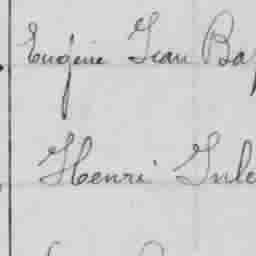 Eugène Jean Bap
Henri Jule